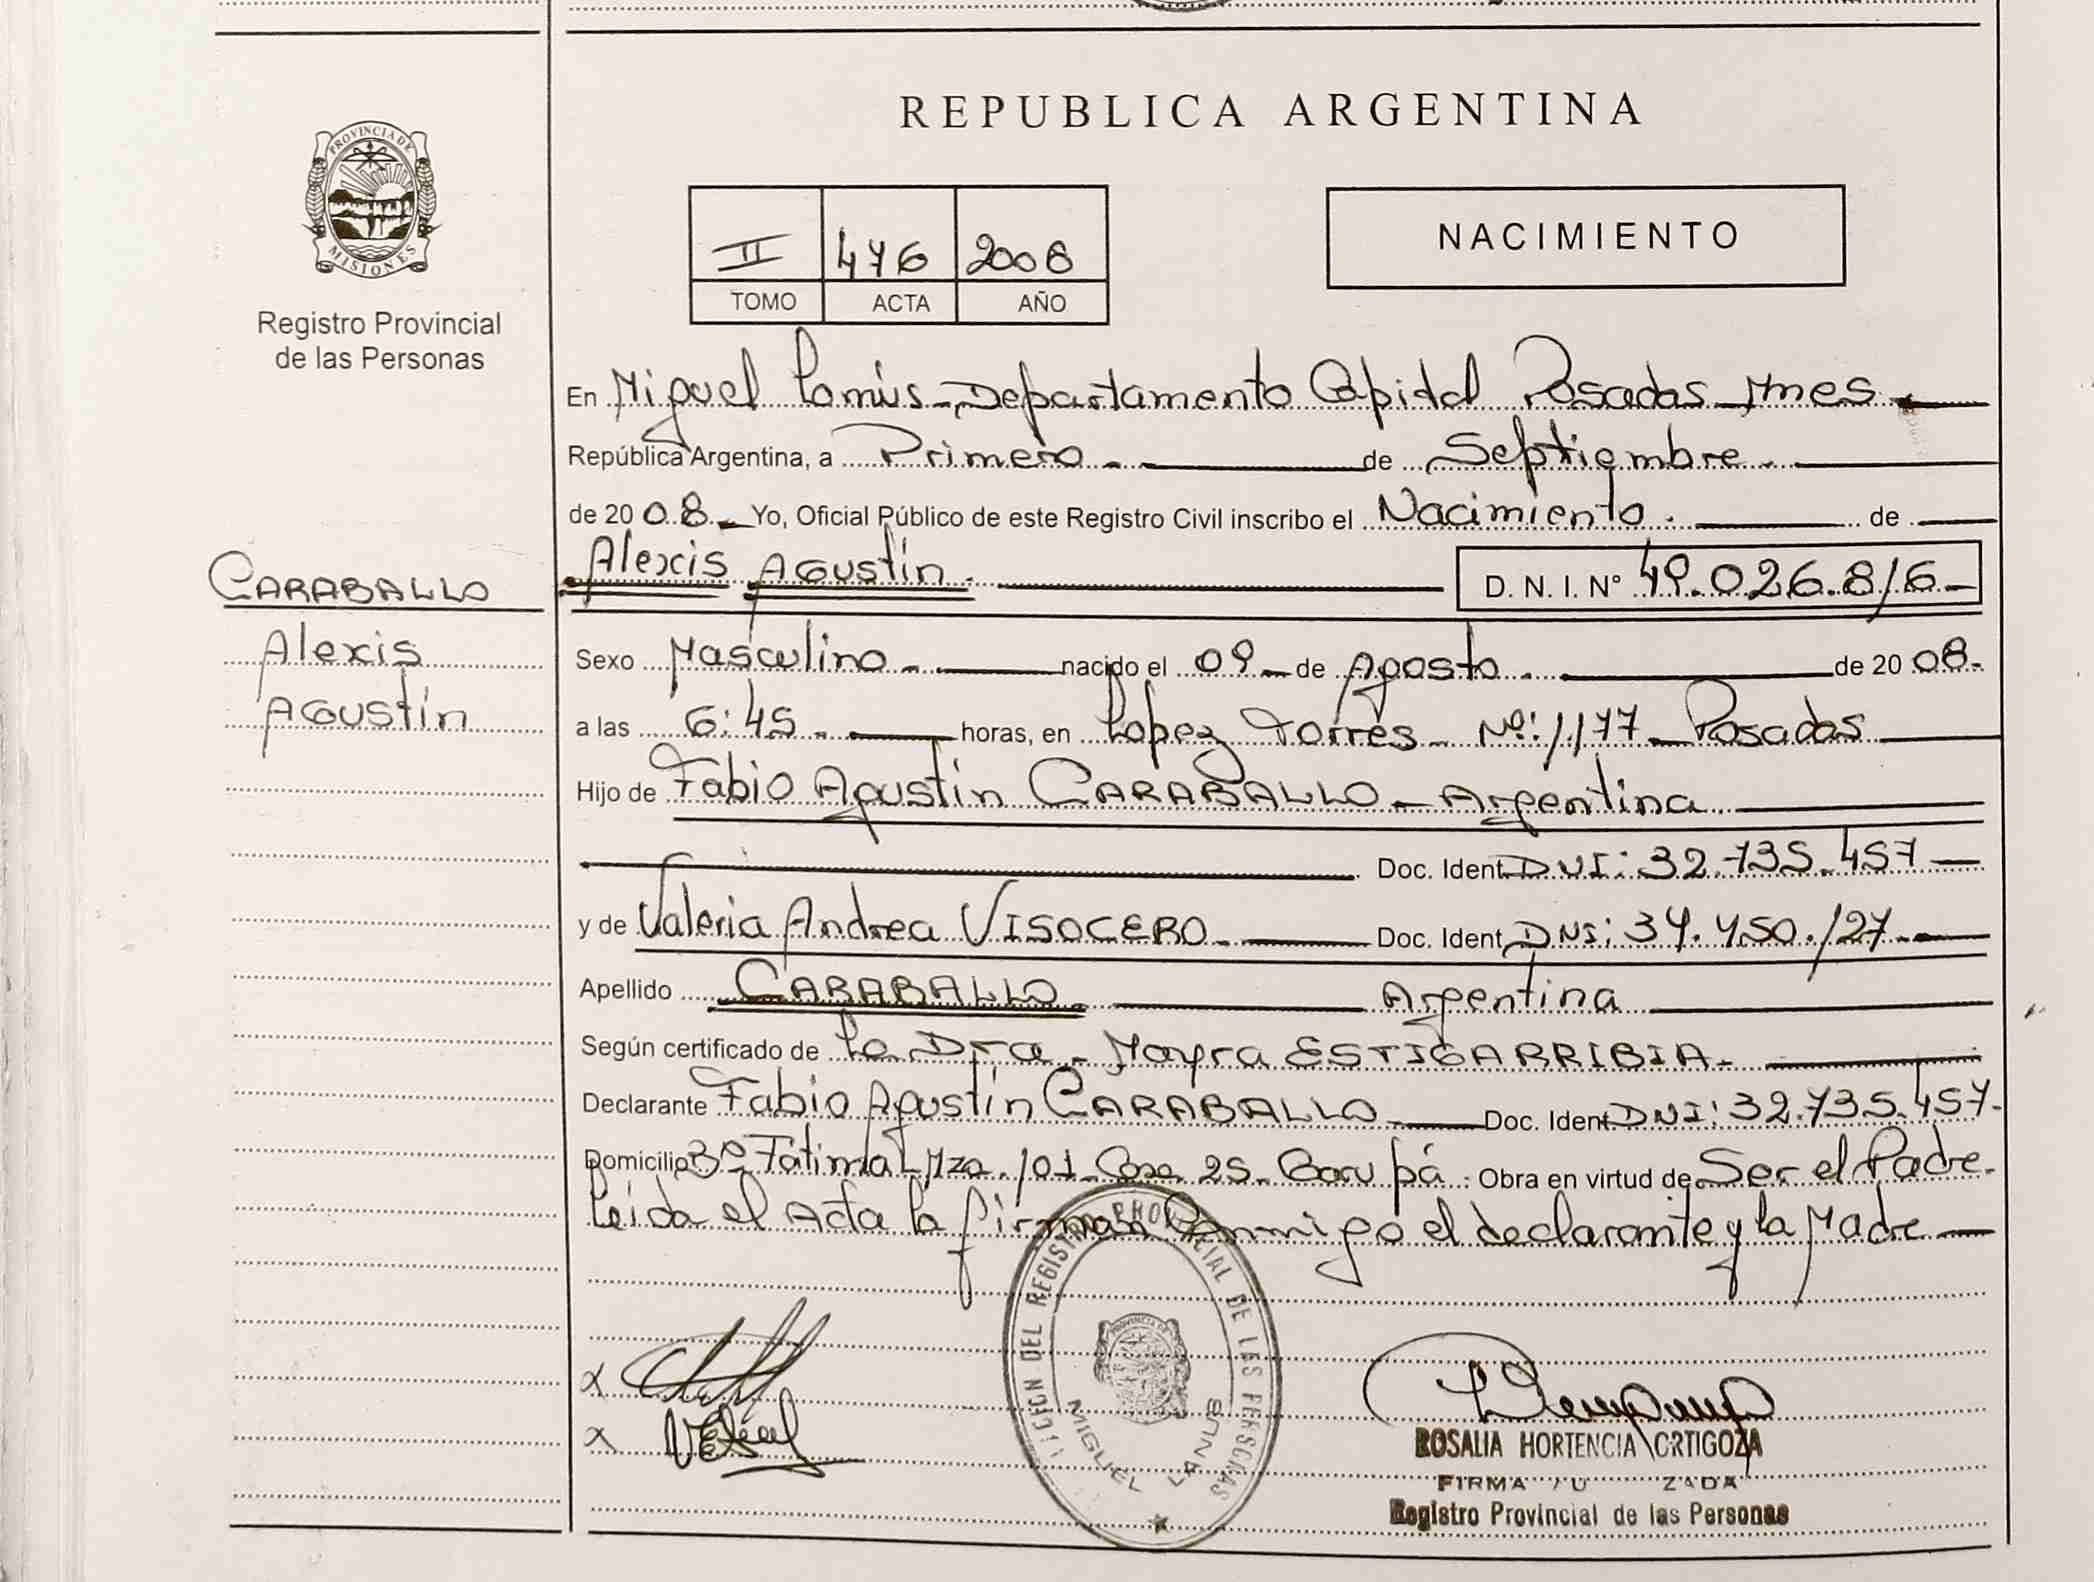 REPUBLICA ARGENTINA
PROVINCIA DE
MISIONES
Registro Provincial
de las Personas
II 476 2008
TOMO ACTA AÑO
NACIMIENTO
En Miguel Lanús - Departamento Capital Posadas Mnes.
República Argentina, a Primero. de Septiembre.
de 20 08. Yo, Oficial Público de este Registro Civil inscribo el Nacimiento. de
CARABALLO
Alexis
Agustín
Alexis Agustín. D. N. I. Nº 49.026.816
Sexo Masculino. nacido el 09 de Agosto. de 20 08.
a las 6:45. horas, en Lopez Torres - Nº: 1177 - Posadas
Hijo de Fabio Agustín CARABALLO - Argentina
Doc. Ident. DNI: 32.735.457
y de Valeria Andrea VISOCERO. Doc. Ident. DNI: 34.450.127
Apellido CARABALLO. Argentina
Según certificado de La Dra. Mayra ESTIGARRIBIA.
Declarante Fabio Agustín CARABALLO Doc. Ident. DNI: 32.735.457.
Domicilio Bº Fátima Mza. 101 Casa 25. Garupá. Obra en virtud de Ser el Padre.
Leida el Acta la firman Conmigo el declarante y la Madre
x
x
DEL REGISTRO PROVINCIAL DE LAS PERSONAS
PROVINCIA DE
MIGUEL LANUS
ROSALIA HORTENCIA ORTIGOZA
FIRMA
Registro Provincial de las Personas